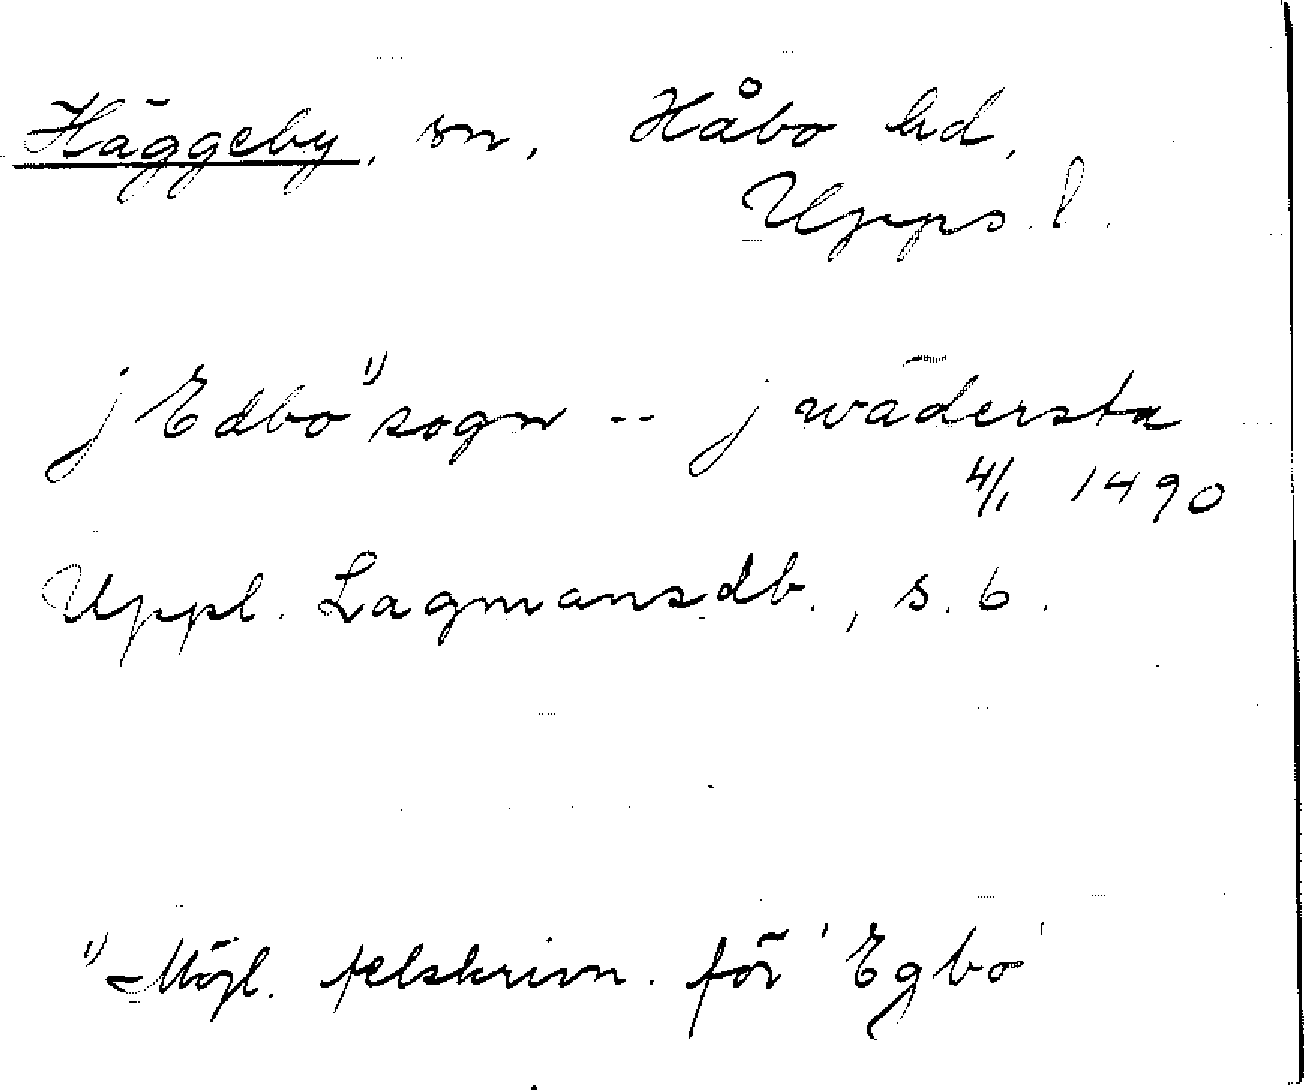 Häggeby, sn, Håbo hd,
Upps. l.
j Edbo¹⁾ sogn -- j wädersta
4/1 1490
Uppl. Lagmansdb., s. 6.
¹⁾ Möjl. felskrivn. för 'Egbo'